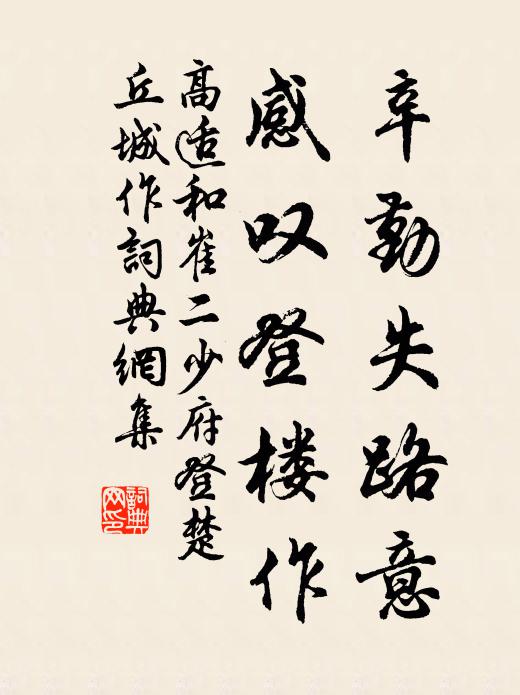 辛勤失路意
感叹登楼作
高适和崔二少府登楚
丘城作詞典網集
詞典
网印